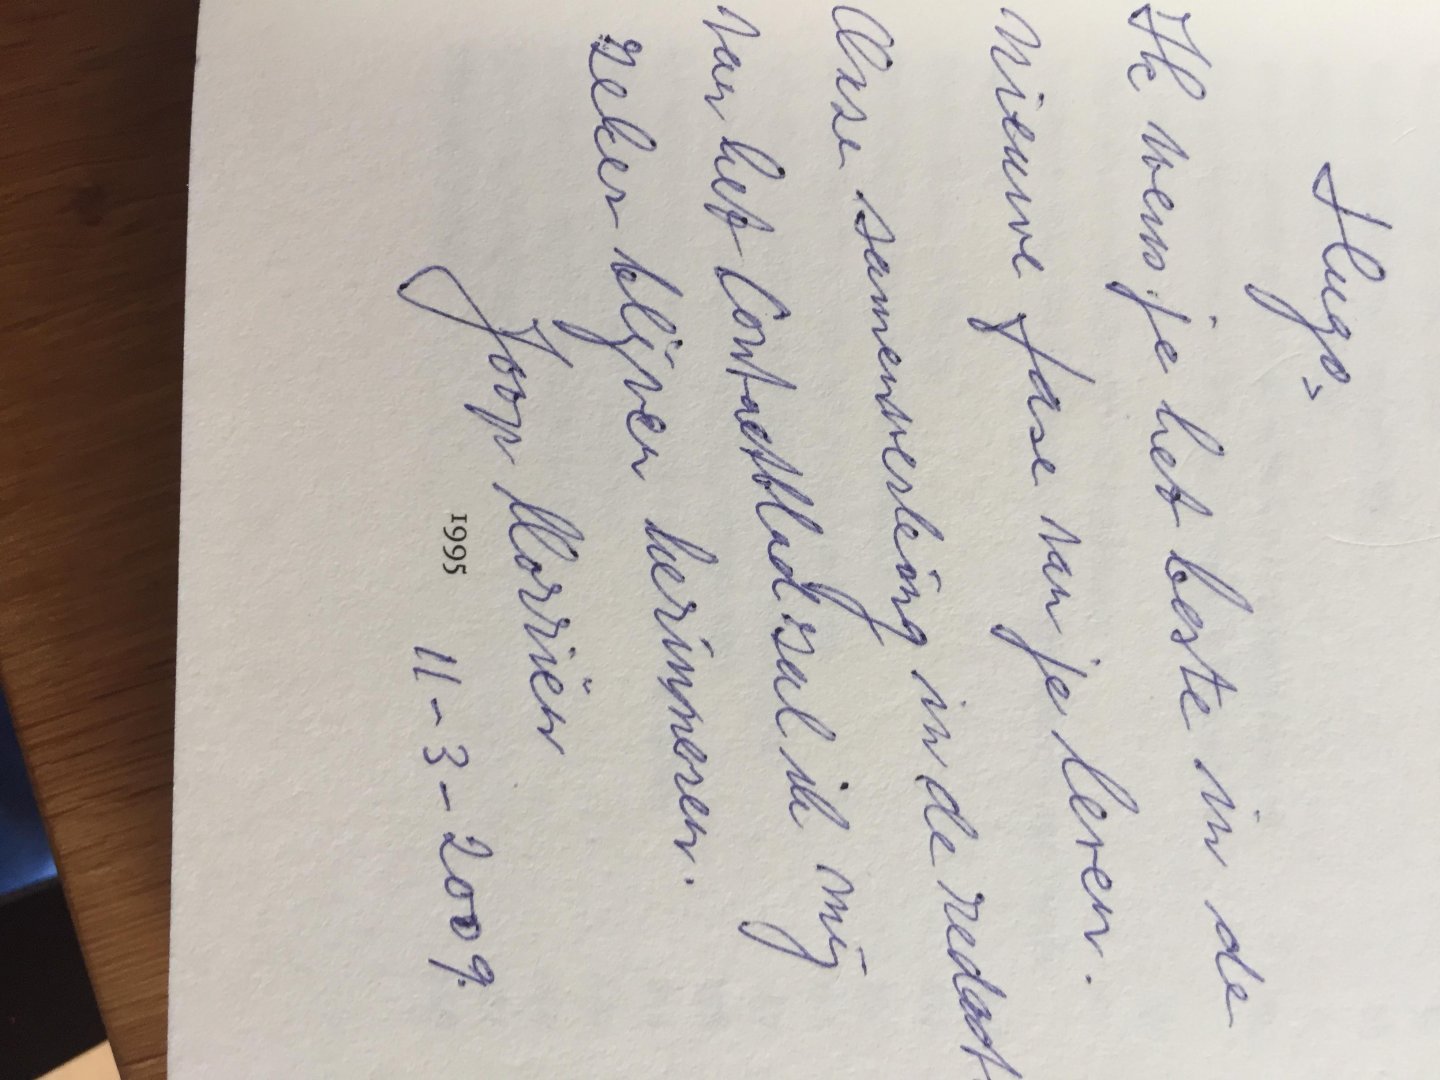 Hugo,
Ik wens je het beste in de
nieuwe fase van je leven.
Onze samenwerking in de redact
van het Contactblad zal ik mij
zeker blijven herinneren.
Joop Morriën
1995
11-3-2009.